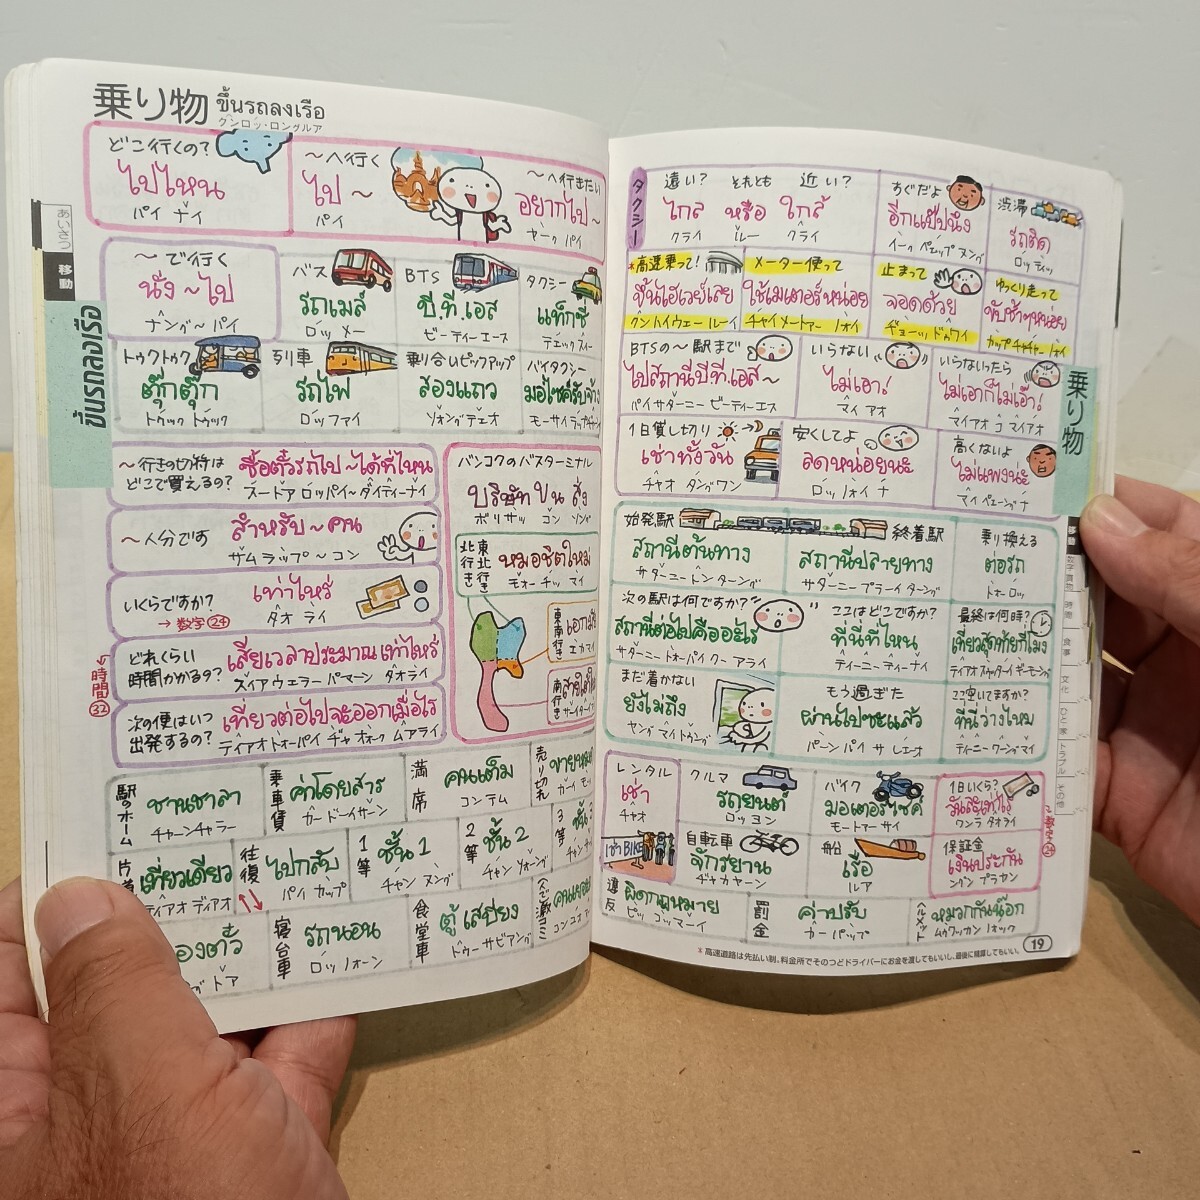 乗り物 ขึ้นรถลงเรือ
クンロッ・ロングルア
あいさつ
移動
ขึ้นรถลงเรือ
どこ行くの?
ไปไหน
パイ ナイ
～へ行く
ไป ~
パイ
～へ行きたい
อยากไป ~
ヤーク パイ
～で行く
นั่ง ~ ไป
ナング ～ パイ
バス
รถเมล์
ロッ メー
BTS
บี.ที.เอส
ビーティーエース
タクシー
แท็กซี่
テェックスィー
トゥクトゥク
ตุ๊กตุ๊ก
トゥック トゥック
列車
รถไฟ
ロッファイ
乗り合いピックアップ
สองแถว
ソォングテェオ
バイクタクシー
มอไซค์รับจ้าง
～行きの切符は
どこで買えるの?
ซื้อตั๋วรถไป ~ ได้ที่ไหน
スードア ロッパイ～ダイティーナイ
～人分です
สำหรับ ~ คน
サムラップ ～ コン
いくらですか?
→ 数字24
เท่าไหร่
タオ ライ
どれくらい
時間かかるの?
เสียเวลาประมาณเท่าไหร่
スィアウエラー パマーン タオライ
時間32
次の便はいつ
出発するの?
เที่ยวต่อไปจะออกเมื่อไร
ティアオトオーパイ ヂャオオーク ムアライ
バンコクのバスターミナル
บริษัท ขน ส่ง
ボリサッ コン ソング
北行き
東北行き
หมอชิตใหม่
モォーチッ マイ
東南行き
エカマイ
南行き
駅のホーム
ชานชาลา
チャーンチャラー
乗車賃
ค่าโดยสาร
カードーイサーン
満席
คนเต็ม
コンテム
売り切れ
เที่ยวเดียว
ティアオ ディアオ
往復
ไปกลับ
パイ カップ
1等
ชั้น 1
チャン ヌング
2等
ชั้น 2
チャン ソォーング
3等
寝台車
รถนอน
ロッ ノォーン
食堂車
ตู้เสบียง
トゥーサビアング
タクシー
遠い? それとも 近い?
ไกล หรือ ใกล้
クライ ルー クライ
すぐだよ
อีกแป๊ปนึง
イーク ペェップ ヌング
渋滞
รถติด
ロッ ティッ
*高速乗って!
ขึ้นไฮเวย์เลย
クンハイウェー ルーイ
メーター使って
ใช้เมเตอร์หน่อย
チャイメートァー ノォイ
止まって
จอดด้วย
ヂョーッ ドゥワイ
ゆっくり走って
ขับช้าๆหน่อย
カップチャチャー ノォイ
BTSの～駅まで
ไปสถานีบีที.เอส ~
パイサターニー ビーティーエス
いらない
ไม่เอา!
マイ アオ
いらないったら
ไม่เอาก็ไม่เอ๊า!
マイアオ コ マイアオ
1日貸し切り
เช่าทั้งวัน
チャオ タングワン
安くしてよ
ลดหน่อยนะ
ロッ ノォイ ナ
高くないよ
ไม่แพงน่ะ
マイ ペェーング ナ
乗り物
始発駅
สถานีต้นทาง
サターニー トン ターング
終着駅
สถานีปลายทาง
サターニー プラーイ ターング
乗り換える
ต่อรถ
トォーロッ
次の駅は何ですか?
สถานีต่อไปคืออะไร
サターニートォーパイ クー アライ
ここはどこですか?
ที่นี่ที่ไหน
ティーニーティーナイ
最終は何時?
เที่ยวสุดท้ายกี่โมง
まだ着かない
ยังไม่ถึง
ヤング マイ トゥング
もう過ぎた
ผ่านไปซะแล้ว
パーン パイ サ レェーオ
ここ空いてますか?
ที่นี่ว่างไหม
ティーニー ワーング マイ
移動
食事
文化
トラブル
その他
レンタル
เช่า
チャオ
クルマ
รถยนต์
ロッ ヨン
バイク
มอเตอร์ไซค์
モートァー サイ
1日いくら?
วันละเท่าไร
ワンラ タオライ
เช่า BIKE
自転車
จักรยาน
ヂャカヤーン
船
เรือ
ルア
保証金
เงินประกัน
ングン プラカン
違反
ผิดกฎหมาย
ピッ コッマーイ
罰金
ค่าปรับ
カー パップ
ヘルメット
หมวกกันน็อก
ムゥワッカン ノォック
19
*高速道路は先払い制。料金所でそのつどドライバーにお金を渡してもいいし、最後に精算してもいい。